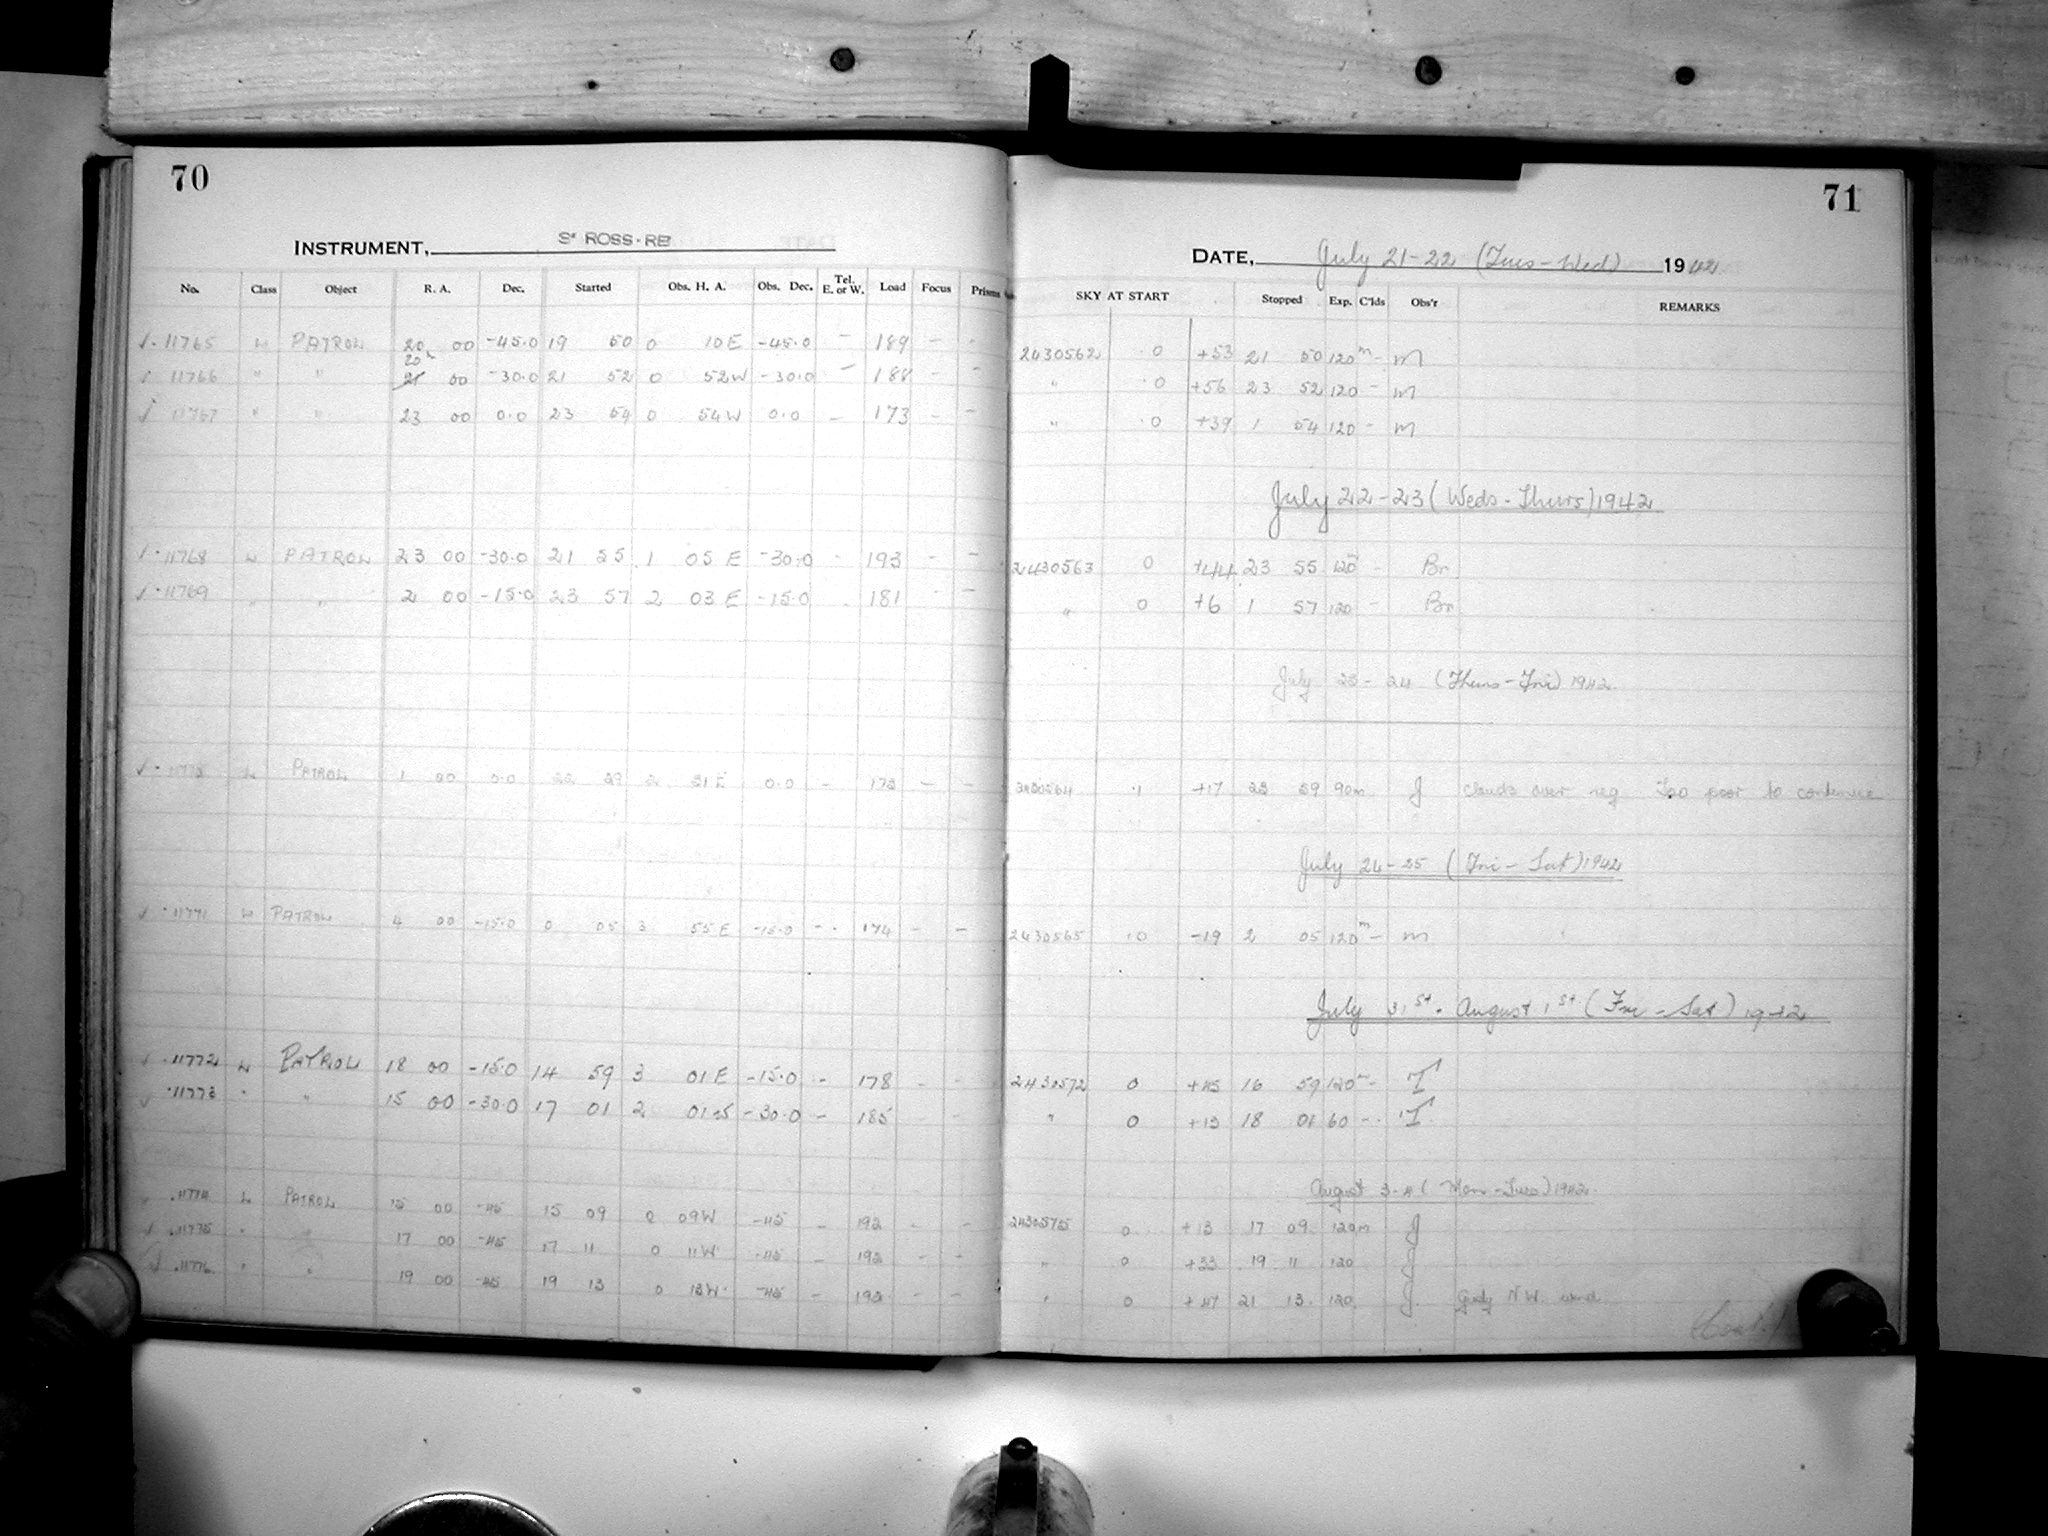 70
INSTRUMENT, 3" ROSS-RB
No. Class Object R. A. Dec. Started Obs. H. A. Obs. Dec. Tel. E. or W. Load Focus Prisms
√ · 11765 L PATROL 20 00 -45.0 19 50 0 10 E -45.0 - 189 - -
20h
√ 11766 " " 21 00 -30.0 21 52 0 52 W -30.0 - 188 - -
√ 11767 " " 23 00 0.0 23 54 0 54 W 0.0 - 173 - -
√ · 11768 L PATROL 23 00 -30.0 21 55 1 05 E -30.0 - 193 - -
√ · 11769 " " 2 00 -15.0 23 57 2 03 E -15.0 . 181 - -
√ · PATROL 1 00 0.0 22 29 2 31 E 0.0 - 172 - -
√ · 11771 L PATROL 4 00 -15.0 0 05 3 55 E -15.0 - 174 - -
√ · 11772 L PATROL 18 00 -15.0 14 59 3 01 E -15.0 - 178 - -
√ · 11773 " " 15 00 -30.0 17 01 2 01 -30.0 - 185 - -
√ · 11774 L PATROL 15 00 -45 15 09 0 09 W -45 - 192 - -
√ · 11775 " " 17 00 -45 17 11 0 11 W -45 - 192 - -
√ · 11776 " " 19 00 -45 19 13 0 13 W -45 - 192 - -
71
DATE, July 21-22 (Tues-Wed) 1942
SKY AT START Stopped Exp. C'lds Obs'r REMARKS
2430562 .0 +53 21 50 120m - m
" .0 +56 23 52 120 - m
" .0 +39 1 54 120 - m
July 22-23 (Weds-Thurs) 1942
2430563 0 +44 23 55 120m - Br.
" 0 +6 1 57 120 - Br
July 23-24 (Thurs-Fri) 1942
.1 +17 23 59 90m J clouds over reg. Too poor to continue
July 24-25 (Fri-Sat) 1942
2430565 .0 -19 2 05 120m - m
July 31st - August 1st (Fri-Sat) 1942
2430572 0 +45 16 59 120m - T
" 0 +13 18 01 60 - T
August 3-4 (Mon-Tues) 1942
2430575 0 +13 17 09 120m J
" 0 +33 19 11 120 J
" 0 +47 21 13 120 J Gusty N.W. wind